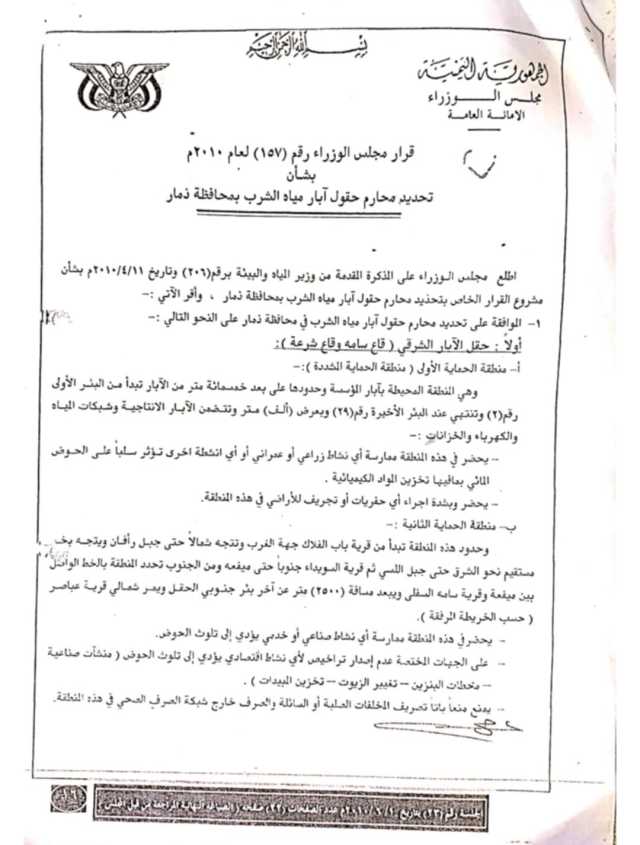 بسم الله الرحمن الرحيم
الجمهورية اليمنية
مجلس الوزراء
الامانة العامة
قرار مجلس الوزراء رقم (١٥٧) لعام ٢٠١٠م
بشأن
تحديد محارم حقول آبار مياه الشرب بمحافظة ذمار
اطلع مجلس الوزراء على المذكرة المقدمة من وزير المياه والبيئة برقم(٢٠٦) وتاريخ ٢٠١٠/٤/١١م بشأن
مشروع القرار الخاص بتحديد محارم حقول آبار مياه الشرب بمحافظة ذمار ، وأقر الآتي :-
١- الموافقة على تحديد محارم حقول آبار مياه الشرب في محافظة ذمار على النحو التالي :-
أولاً : حقل الآبار الشرقي ( قاع سامه وقاع شرعة ):
أ- منطقة الحماية الأولى ( منطقة الحماية المشددة ):-
وهي المنطقة المحيطة بآبار المؤسسة وحدودها على بعد خمسمائة متر من الآبار تبدأ من البئر الأولى
رقم(٢) وتنتهي عند البئر الأخيرة رقم(٢٩) وبعرض (ألف) متر وتتضمن الآبار الانتاجية وشبكات المياه
والكهرباء والخزانات :-
- يحضر في هذه المنطقة ممارسة أي نشاط زراعي أو عمراني أو أي انشطة اخرى تؤثر سلباً على الحوض
المائي بمافيها تخزين المواد الكيميائية .
- يحضر وبشدة اجراء أي حفريات أو تجريف للأراضي في هذه المنطقة.
ب- منطقة الحماية الثانية :-
وحدود هذه المنطقة تبدأ من قرية باب الفلاك جهة الغرب وتتجه شمالاً حتى جبل رأفان ويتجه بخ
مستقيم نحو الشرق حتى جبل اللسي ثم قرية السويداء جنوباً حتى ميفعه ومن الجنوب تحدد المنطقة بالخط الواصل
بين ميفعة وقرية سامه السفلى وبيعد مسافة (٢٥٠٠) متر عن آخر بئر جنوبي الحقل ويمر شمالي قرية عباصر
( حسب الخريطة المرفقة ).
- يحضر في هذه المنطقة ممارسة أي نشاط صناعي أو خدمي يؤدي إلى تلوث الحوض.
- على الجهات المختصة عدم إصدار تراخيص لأي نشاط اقتصادي يؤدي إلى تلوث الحوض ( منشآت صناعية
- محطات البنزين - تغيير الزيوت - تخزين المبيدات ) .
- يمنع منعاً باتاً تصريف المخلفات الصلبة أو السائلة والصرف خارج شبكة الصرف الصحي في هذه المنطقة.
الجلسة رقم (٢٣) بتاريخ عدد الصفحات (٢٢) صفحة ( الصياغة النهائية المراجعة من قبل المجلس )